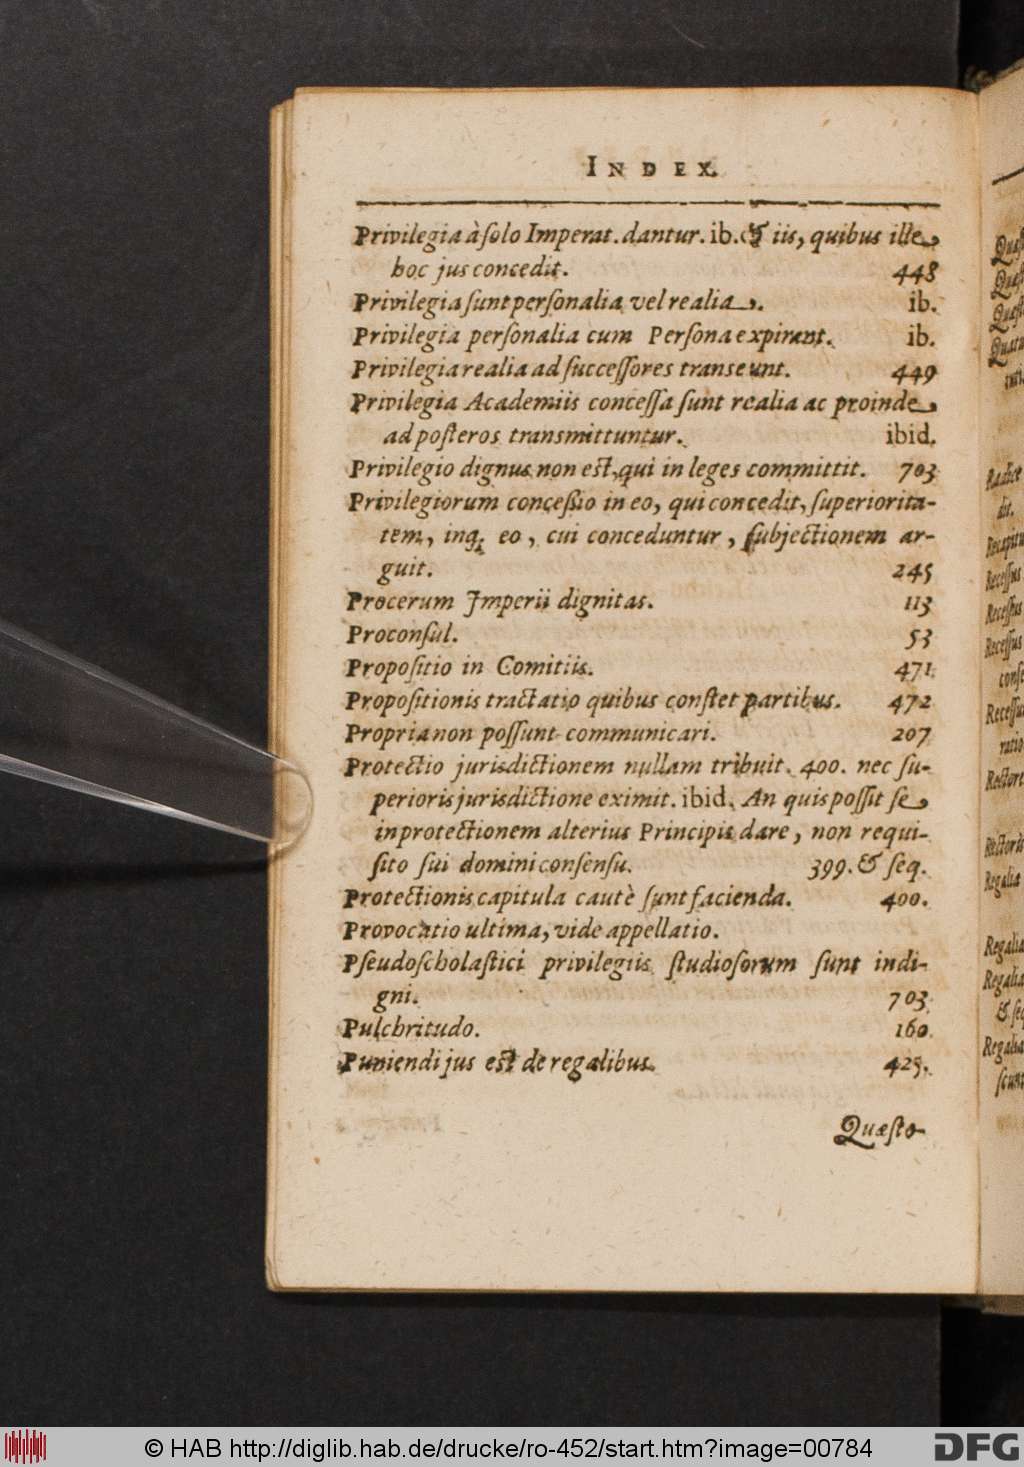 INDEX.
Privilegia à ſolo Imperat. dantur. ib. & iis, quibus ille
hoc jus concedit. 448
Privilegia ſunt perſonalia vel realia. ib.
Privilegia perſonalia cum Perſona expirant. ib.
Privilegia realia ad ſucceſſores transeunt. 449
Privilegia Academiis conceſſa ſunt realia ac proinde
ad poſteros transmittuntur. ibid.
Privilegio dignus non est, qui in leges committit. 703
Privilegiorum conceßio in eo, qui concedit, ſuperiorita-
tem, inq; eo, cui conceduntur, ſubjectionem ar-
guit. 245
Procerum Imperii dignitas. 113
Proconſul. 53
Propoſitio in Comitiis. 471
Propoſitionis tractatio quibus conſtet partibus. 472
Propria non poſſunt communicari. 207
Protectio jurisdictionem nullam tribuit. 400. nec ſu-
perioris jurisdictione eximit. ibid. An quis poſſit ſe
in protectionem alterius Principis dare, non requi-
ſito ſui domini conſenſu. 399. & ſeq.
Protectionis capitula cautè ſunt facienda. 400.
Provocatio ultima, vide appellatio.
Pſeudoſcholaſtici privilegiis ſtudioſorum ſunt indi-
gni. 703
Pulchritudo. 160
Puniendi jus est de regalibus. 425.
Quæſto-
Quæſt
Quæſt
Quæſt
Quatu
Radice
dit.
Recapitu
Receſſus
Receſſus
Receſſus
conſe
Receſſu
ratio
Rectore
Rectoris
Regalia
Regalia
Regalia
& ſeq
Regalia
ſcunt
© HAB http://diglib.hab.de/drucke/ro-452/start.htm?image=00784
DFG